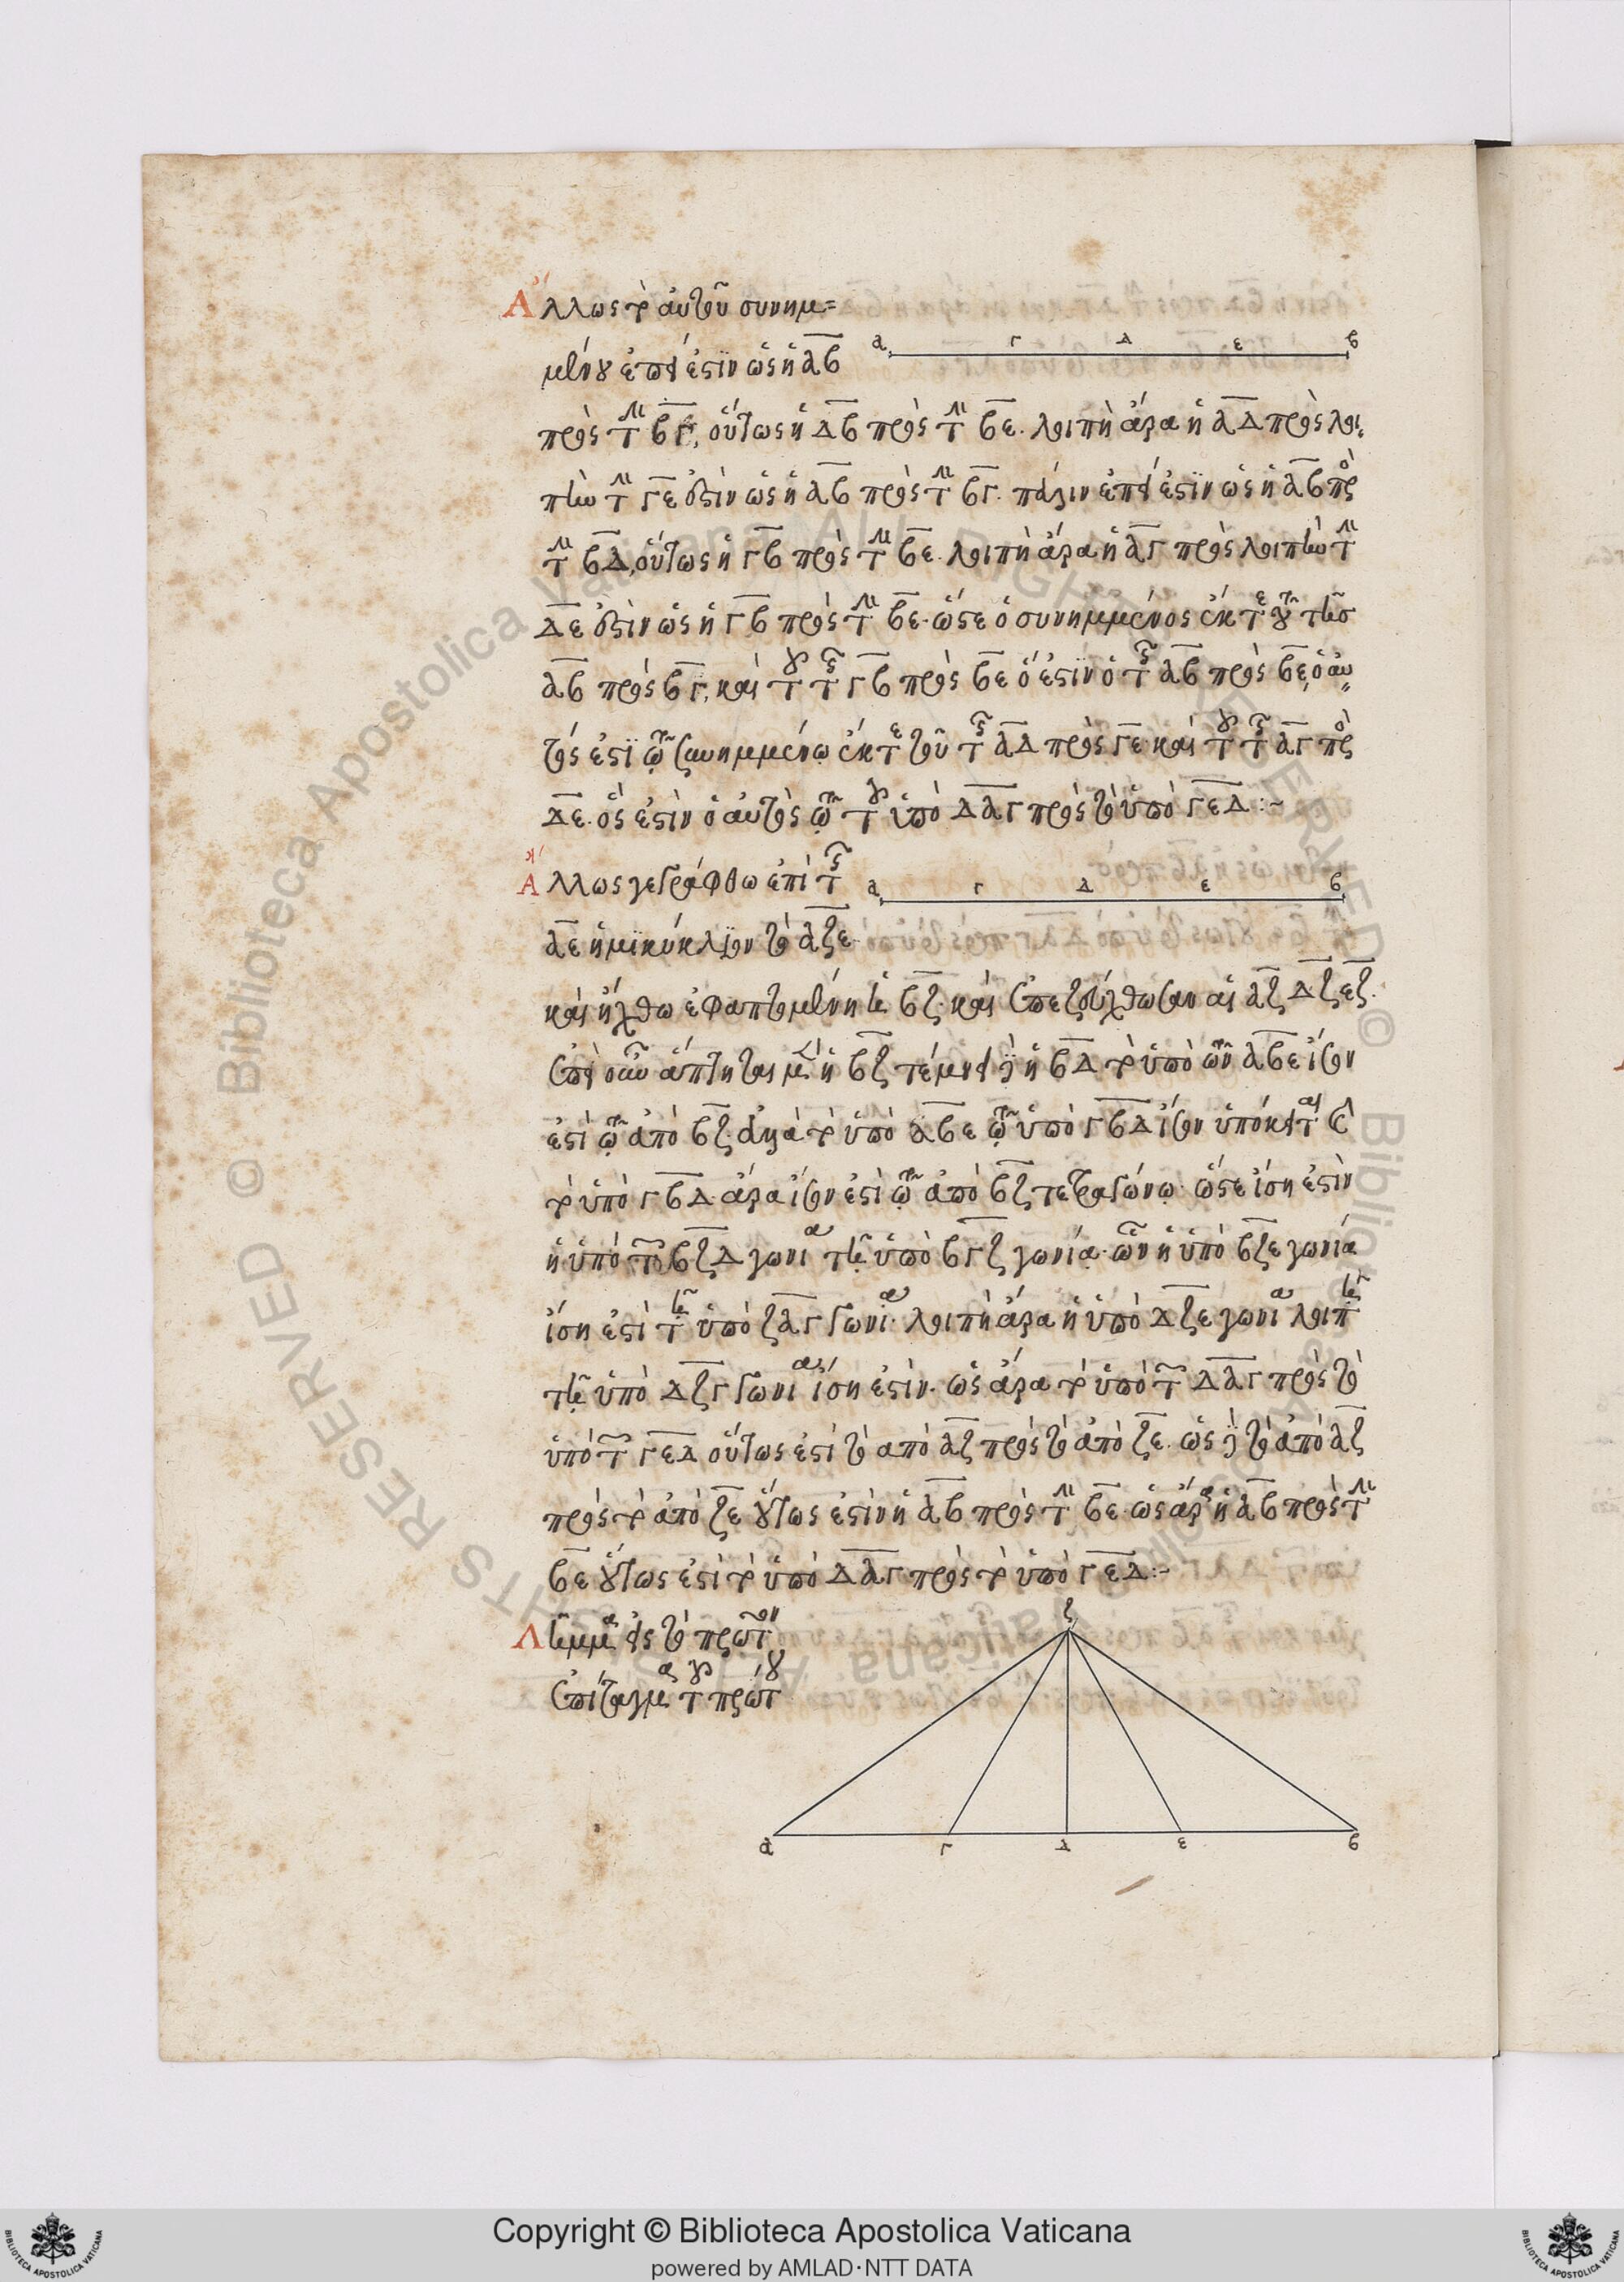 Ἄλλως τὸ αὐτοῦ συνημ=
μένου ἐπεί ἐστιν ὡς ἡ αβ
α γ δ ε β
πρὸς τὴν βγ, οὕτως ἡ δβ πρὸς τὴν βε. λοιπὴ ἄρα ἡ αδ πρὸς λοι
πὴν τὴν γε ἐστὶν ὡς ἡ αβ πρὸς τὴν βγ. πάλιν ἐπεί ἐστιν ὡς ἡ αβ πρὸς
τὴν βδ, οὕτως ἡ γβ πρὸς τὴν βε. λοιπὴ ἄρα ἡ αγ πρὸς λοιπὴν τὴν
δε ἐστὶν ὡς ἡ γβ πρὸς τὴν βε. ὥστε ὁ συνημμένος ἐκ τε τοῦ τῆς
αβ πρὸς βγ, καὶ τοῦ τῆς γβ πρὸς βε ὅ ἐστιν ὁ τῆς αβ πρὸς βε, ὁ αὐ
τός ἐστι τῷ συνημμένῳ ἐκ τε τοῦ τῆς αδ πρὸς γε καὶ τοῦ τῆς αγ πρὸς
δε. ὅς ἐστὶν ὁ αὐτὸς τῷ τοῦ ὑπὸ δαγ πρὸς τὸ ὑπὸ γεδ :~
Ἄλλως γεγράφθω ἐπὶ τῆς
α γ δ ε β
αε ἡμικύκλιον τὸ αζε
καὶ ἤχθω ἐφαπτομένη ἡ βζ. καὶ ἐπεζεύχθωσαν αἱ αζ δζ εζ.
ἐπεὶ οὖν ἅπτηται μὲν ἡ βζ τέμνει δὲ ἡ βδ τὸ ὑπὸ τῶν αβε ἴσον
ἐστὶ τῷ ἀπὸ βζ. ἀλλὰ τὸ ὑπὸ αβε τῷ ὑπὸ γβδ ἴσον ὑπόκειται καὶ
τὸ ὑπὸ γβδ ἄρα ἴσον ἐστὶ τῷ ἀπὸ βζ τετραγώνῳ. ὥστε ἴση ἐστὶν
ἡ ὑπὸ τῶν βζδ γωνία τῇ ὑπὸ βγζ γωνίᾳ. ὧν ἡ ὑπὸ βζε γωνία
ἴση ἐστὶ τῇ ὑπὸ ζαγ γωνίᾳ. λοιπὴ ἄρα ἡ ὑπὸ δζε γωνία λοιπῇ
τῇ ὑπὸ αζγ γωνίᾳ ἴση ἐστὶν. ὡς ἄρα τὸ ὑπὸ τῶν δαγ πρὸς τὸ
ὑπὸ τῶν γεδ οὕτως ἐστὶ τὸ απὸ αζ πρὸς τὸ ἀπὸ ζε. ὡς δὲ τὸ ἀπὸ αζ
πρὸς τὸ ἀπὸ ζε οὕτως ἐστὶν ἡ αβ πρὸς τὴν βε. ὡς ἄρα ἡ αβ πρὸς τὴν
βε οὕτως ἐστὶ τὸ ὑπὸ δαγ πρὸς τὸ ὑπὸ γεδ :~
Λῆμμα εἰς τὸ πρῶτον
ἐπίταγμα τοῦ πρώτου
ζ
α γ δ ε β
Copyright © Biblioteca Apostolica Vaticana
powered by AMLAD·NTT DATA